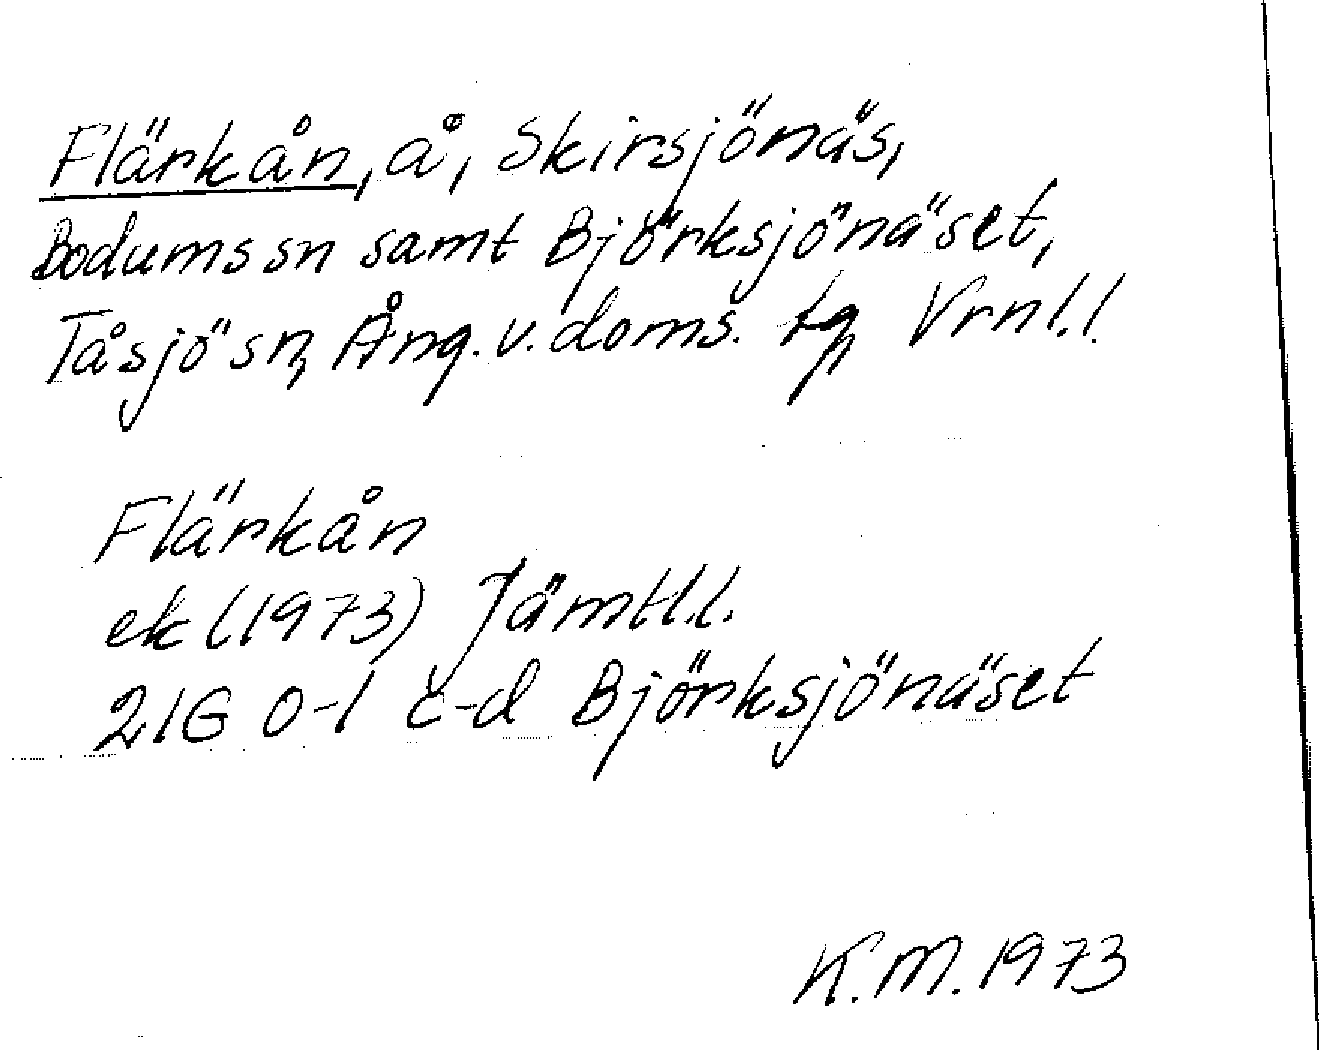 Flärkån, å, Skirsjönäs,
Bodums sn samt Björksjönäset,
Tåsjö sn, Ång. v. doms. tg, Vrnl.l.
Flärkån
ek (1973) Jämtl.l.
21G 0-1 c-d Björksjönäset
K.M. 1973